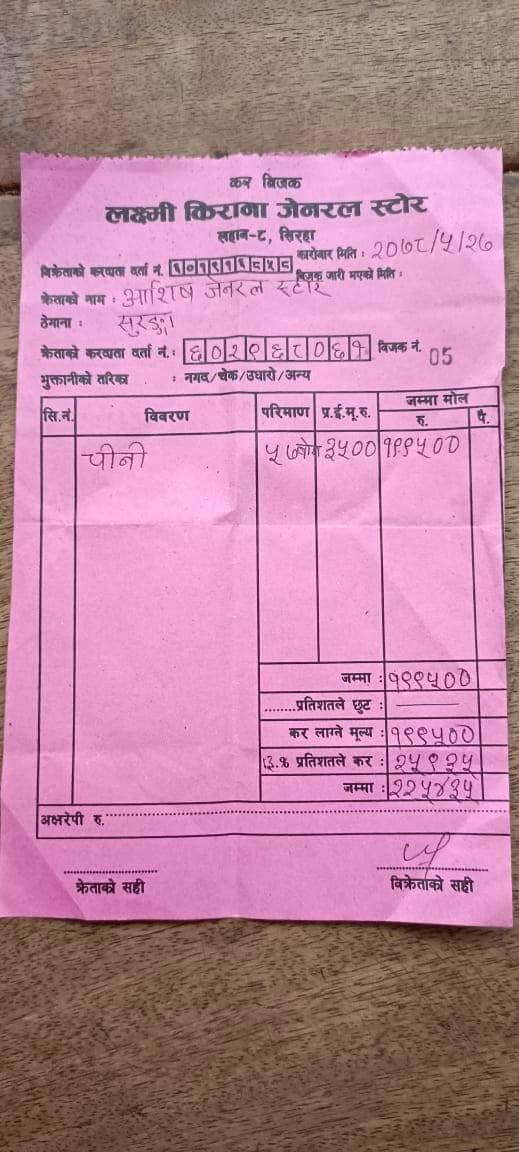 कर बिजक
लक्ष्मी किराना जेनरल स्टोर
लहान-८, सिरहा
कारोबार मिति : २०७८/५/२७
विक्रेताको करदाता दर्ता नं.
बिजक जारी भएको मिति :
क्रेताको नाम : आशिष जनरल स्टोर
ठेगाना : सुरुङ्गा
क्रेताको करदाता दर्ता नं. : ६०२९६८०६१ बिजक नं. 05
भुक्तानीको तरिका : नगद/चेक/उधारो/अन्य
सि.नं. विवरण परिमाण प्र.ई.मू.रु. जम्मा मोल
रु. पै.
चीनी ५७ ३५०० १९९५००
जम्मा : १९९५००
........प्रतिशतले छुट :
कर लाग्ने मूल्य : १९९५००
१३.% प्रतिशतले कर : २५९३५
जम्मा : २२५४३५
अक्षरेपी रु.
क्रेताको सही विक्रेताको सही